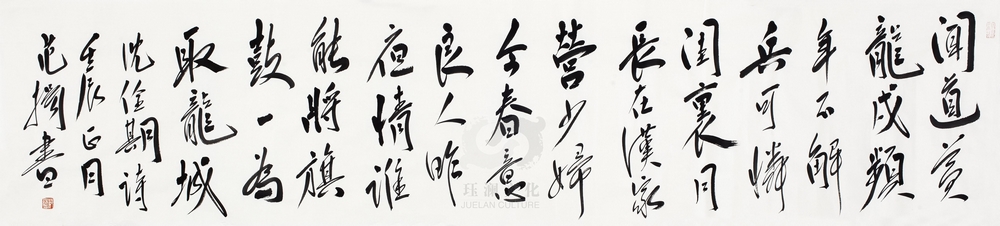 聞道黃
龍戍頻
年不解
兵可憐
閨裏月
長在漢家
營少婦
今春意
良人昨
夜情誰
能將旗
鼓一為
取龍城
沈佺期詩
壬辰正月
范揚書
JUELAN CULTURE